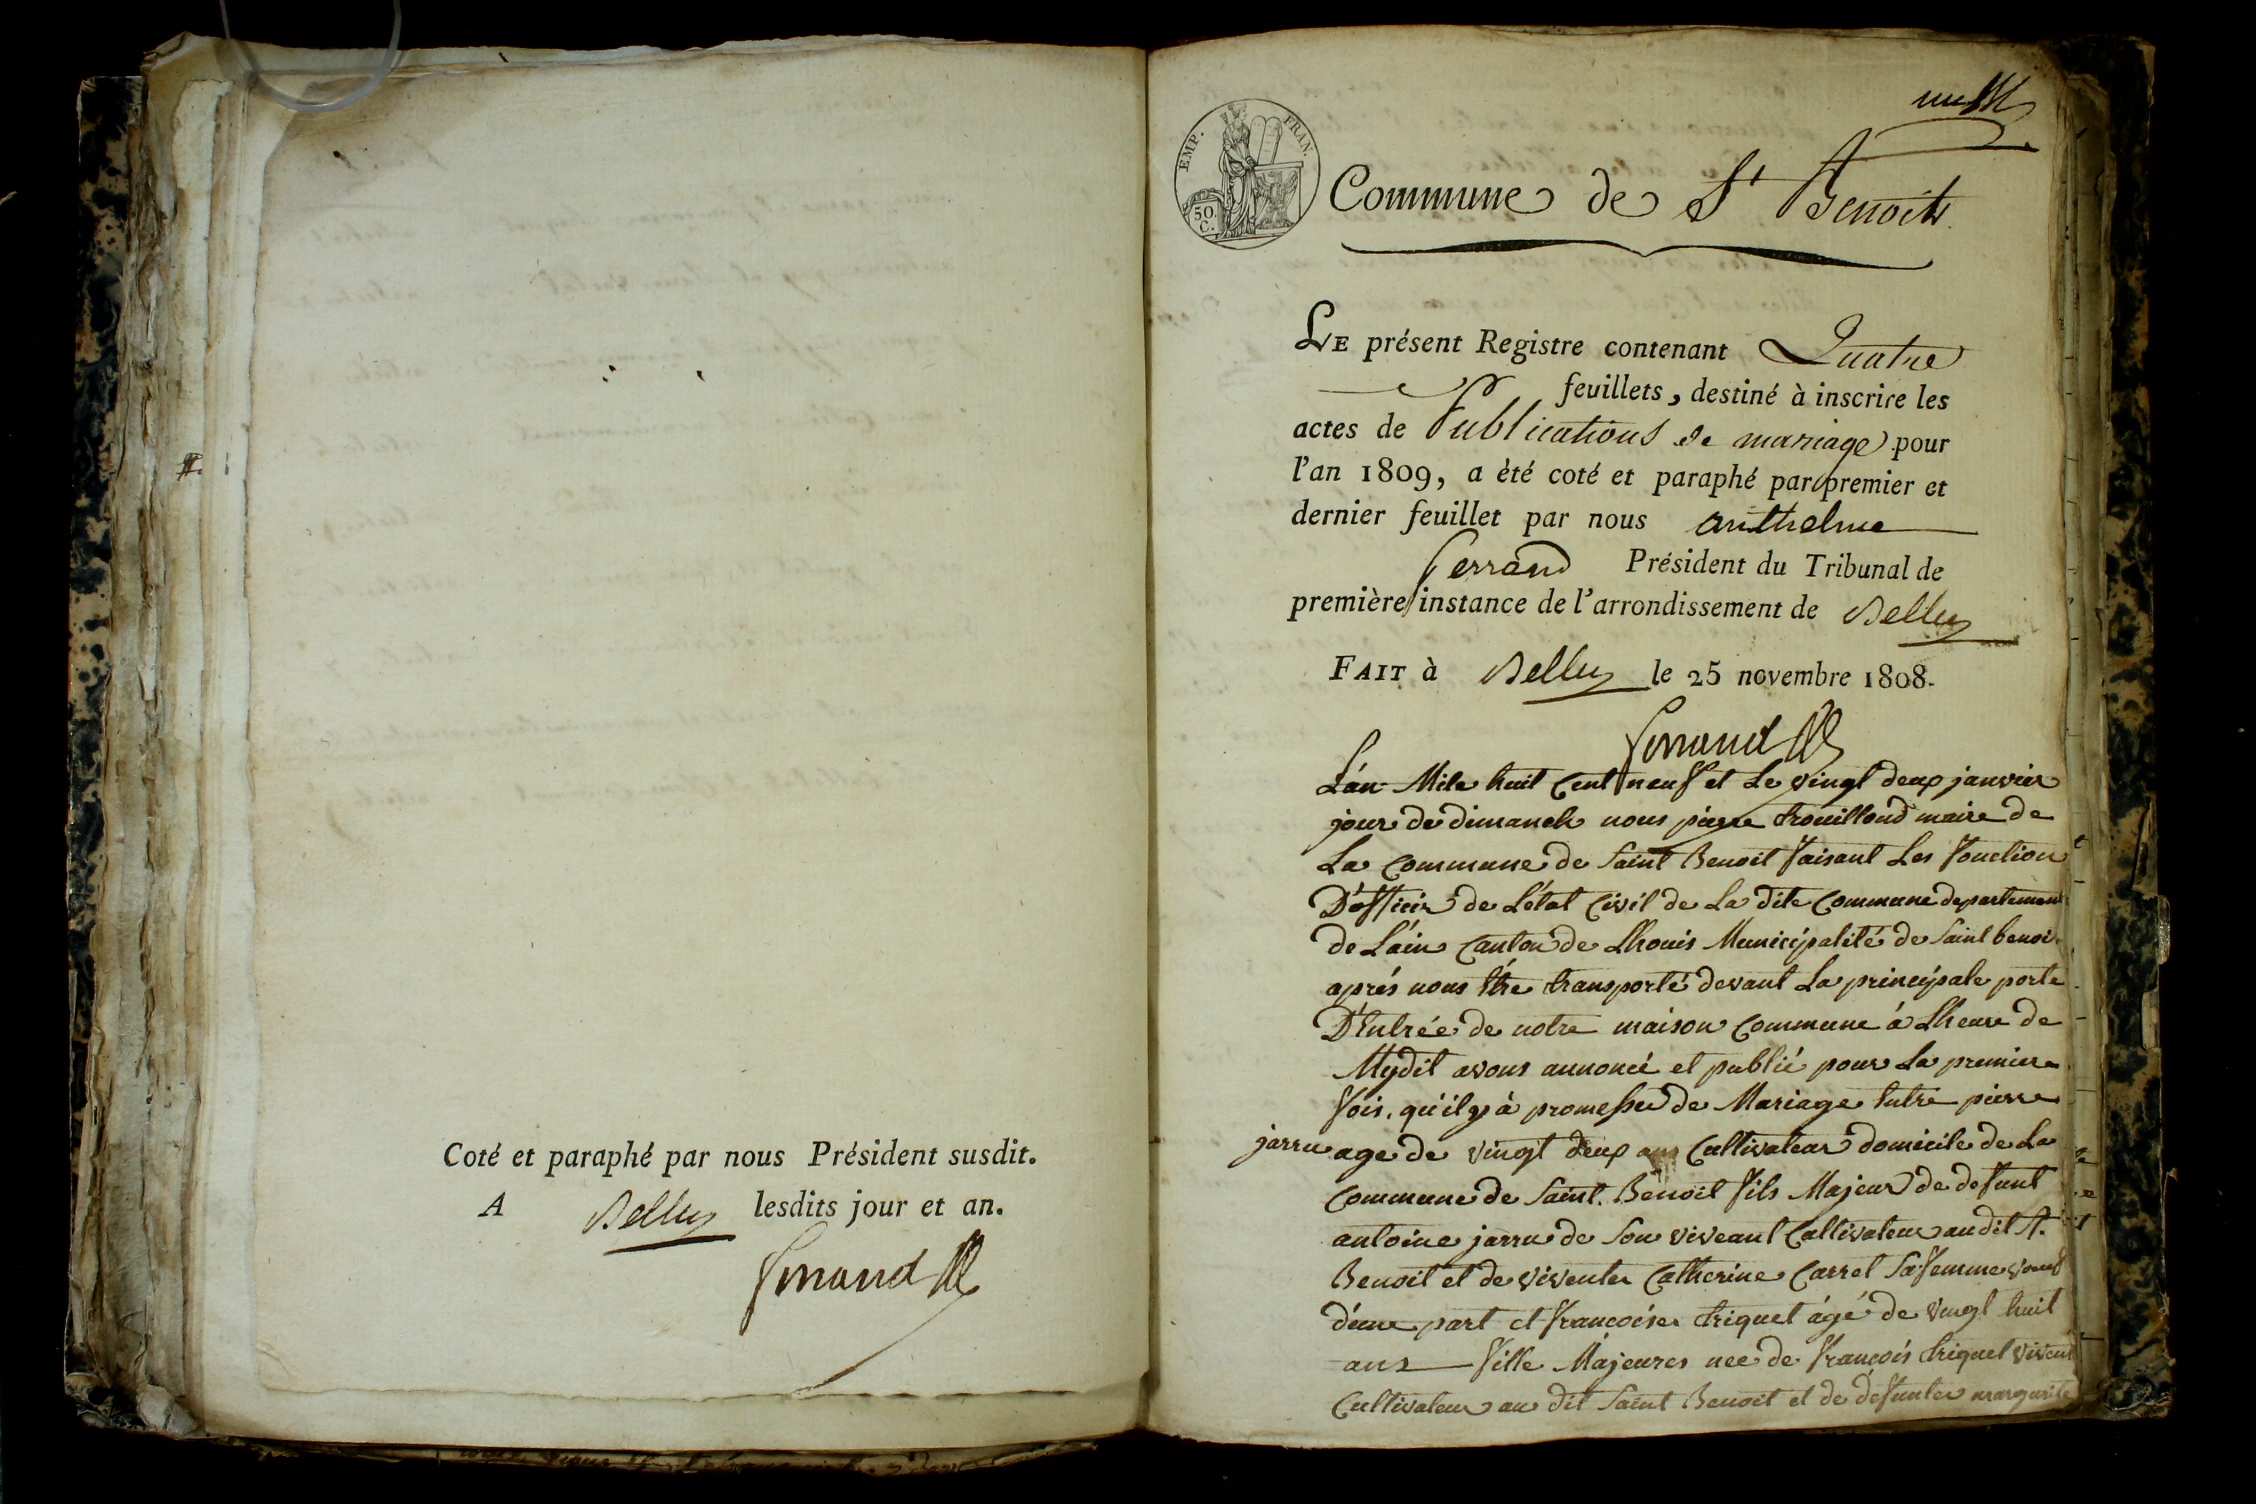 Coté et paraphé par nous Président susdit.
A Belley lesdits jour et an.
Ferrand
EMP. FRAN.
50.
C.
Commune de St Benoit
LE présent Registre contenant Quatre
feuillets, destiné à inscrire les
actes de Publications de mariage pour
l'an 1809, a èté coté et paraphé par premier et
dernier feuillet par nous anthelme
ferrand Président du Tribunal de
première instance de l'arrondissement de Belley
FAIT à Belley le 25 novembre 1808.
Ferrand
L'an Mile huit Cent neuf et Le vingt deux janvier
jour de dimanch nous pierre trouilloud maire de
La Commune de Saint Benoit faisant Les fonction
D'officier de L'état Civil de La dite Commune departement
de L'ain Canton de Lhouis Municipalité de Saint benoi
aprés nous être transporté devant La principale porte
D'Entrée de notre maison Commune á Lheure de
Mydit avons annoncé et publié pour La premiere
fois, qu'il y à promesse de Mariage Entre pierre
jarru age de vingt deux ans Cultivateur domicile de La
Commune de Saint Benoit fils Majeur de defunt
antoine jarru de Son viveant Cultivateur audit St.
Benoit et de vivente Catherine Carrel Sa femme
d'une part et francoise triquet ágé de vingt huit
ans fille Majeures nee de francois triquet vivent
Cultivateur au dit Saint Benoit et de défunte marguerite